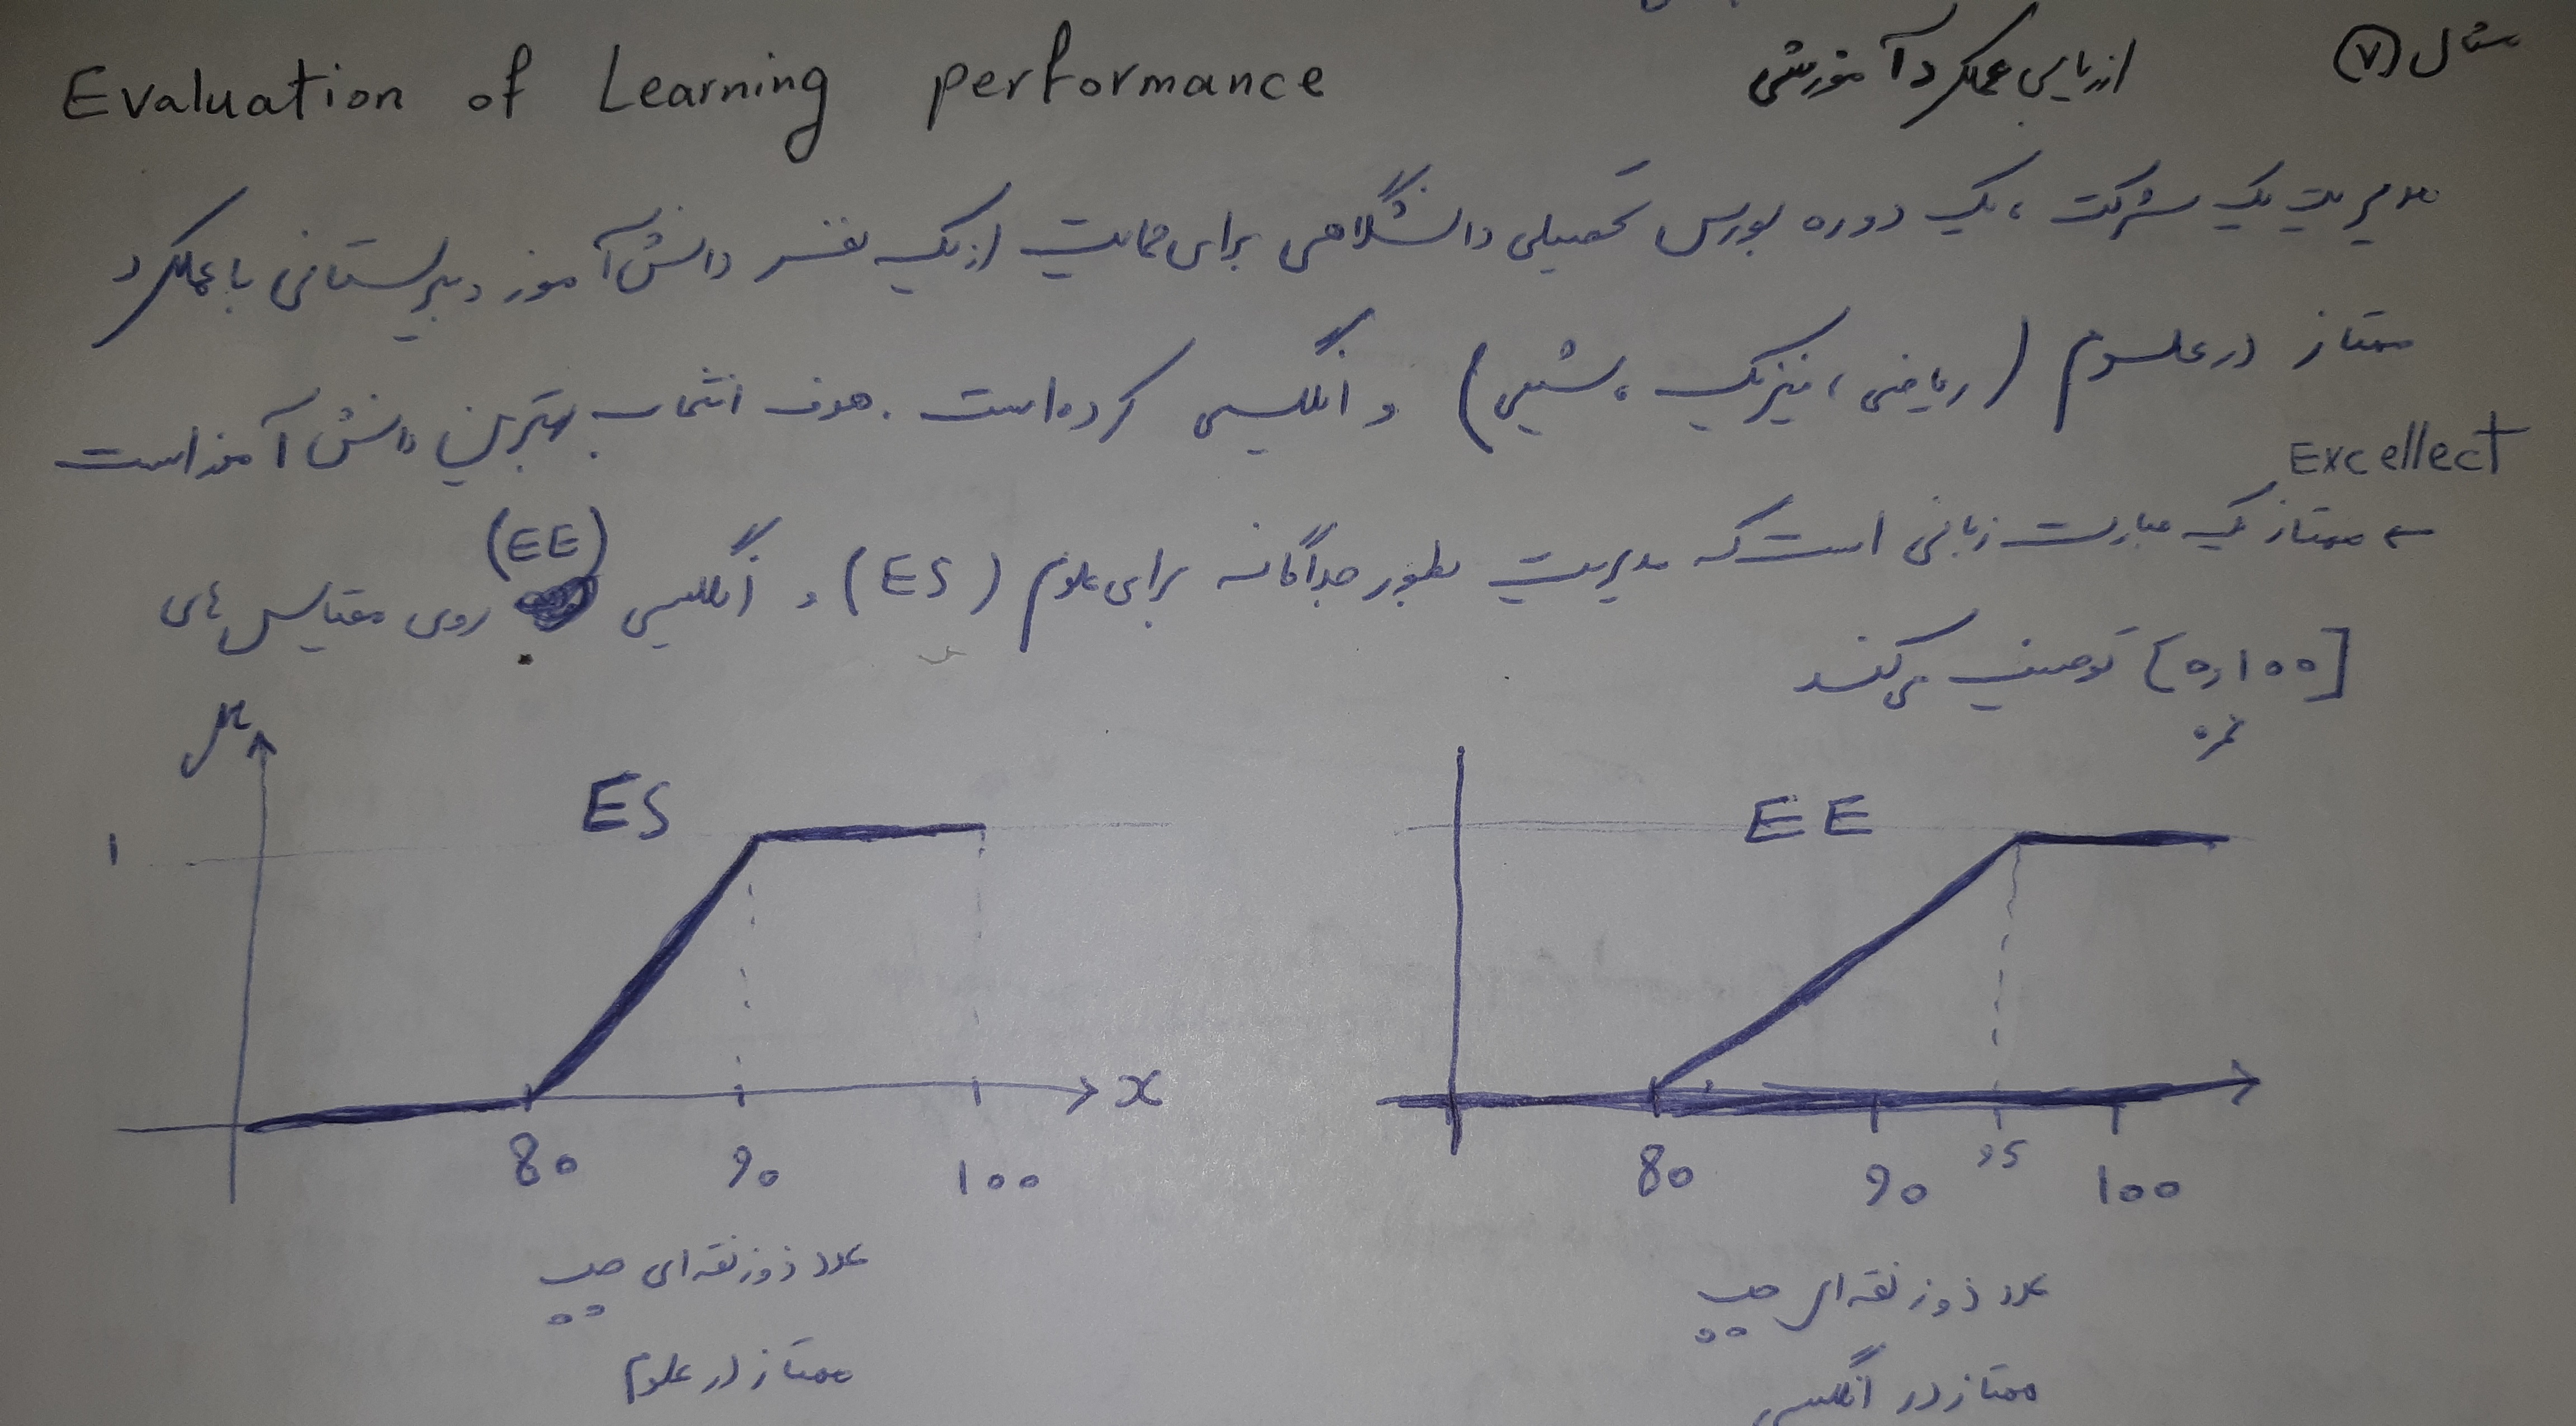 مثال (۷) ارزیابی عملکرد آموزشی Evaluation of Learning performance
مدیریت یک شرکت، یک دوره بورس تحصیلی دانشگاهی برای حمایت از یک نفر دانش آموز دبیرستانی با عملکرد
ممتاز در علوم (ریاضی، فیزیک، شیمی) و انگلیسی کرده است. هدف انتخاب بهترین دانش آموز است
Excellect
ممتاز یک عبارت زبانی است که مدیریت بطور جداگانه برای علوم (ES) و انگلیسی (EE) روی مقیاس های
[0,100] توصیف می کند
نمره
μ
ES
1
80 90 100 x
عدد ذوزنقه ای چپ
ممتاز در علوم
EE
80 90 95 100
عدد ذوزنقه ای چپ
ممتاز در انگلیسی